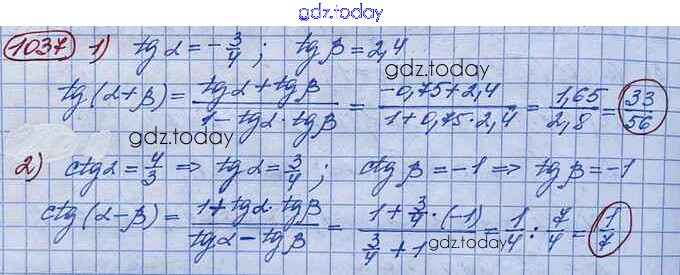 gdz.today
1037 1) tg α = -3/4 ; tg β = 2,4
gdz.today
tg(α+β) = (tgα + tgβ)/(1 - tgα · tgβ) = (-0,75 + 2,4)/(1 + 0,75 · 2,4) = 1,65/2,8 = 33/56
gdz.today
2) ctgα = 4/3 => tgα = 3/4 ; ctgβ = -1 => tgβ = -1
ctg(α-β) = (1 + tgα · tgβ)/(tgα - tgβ) = (1 + 3/4 · (-1))/(3/4 + 1) = 1/4 : 7/4 = 1/7
gdz.today